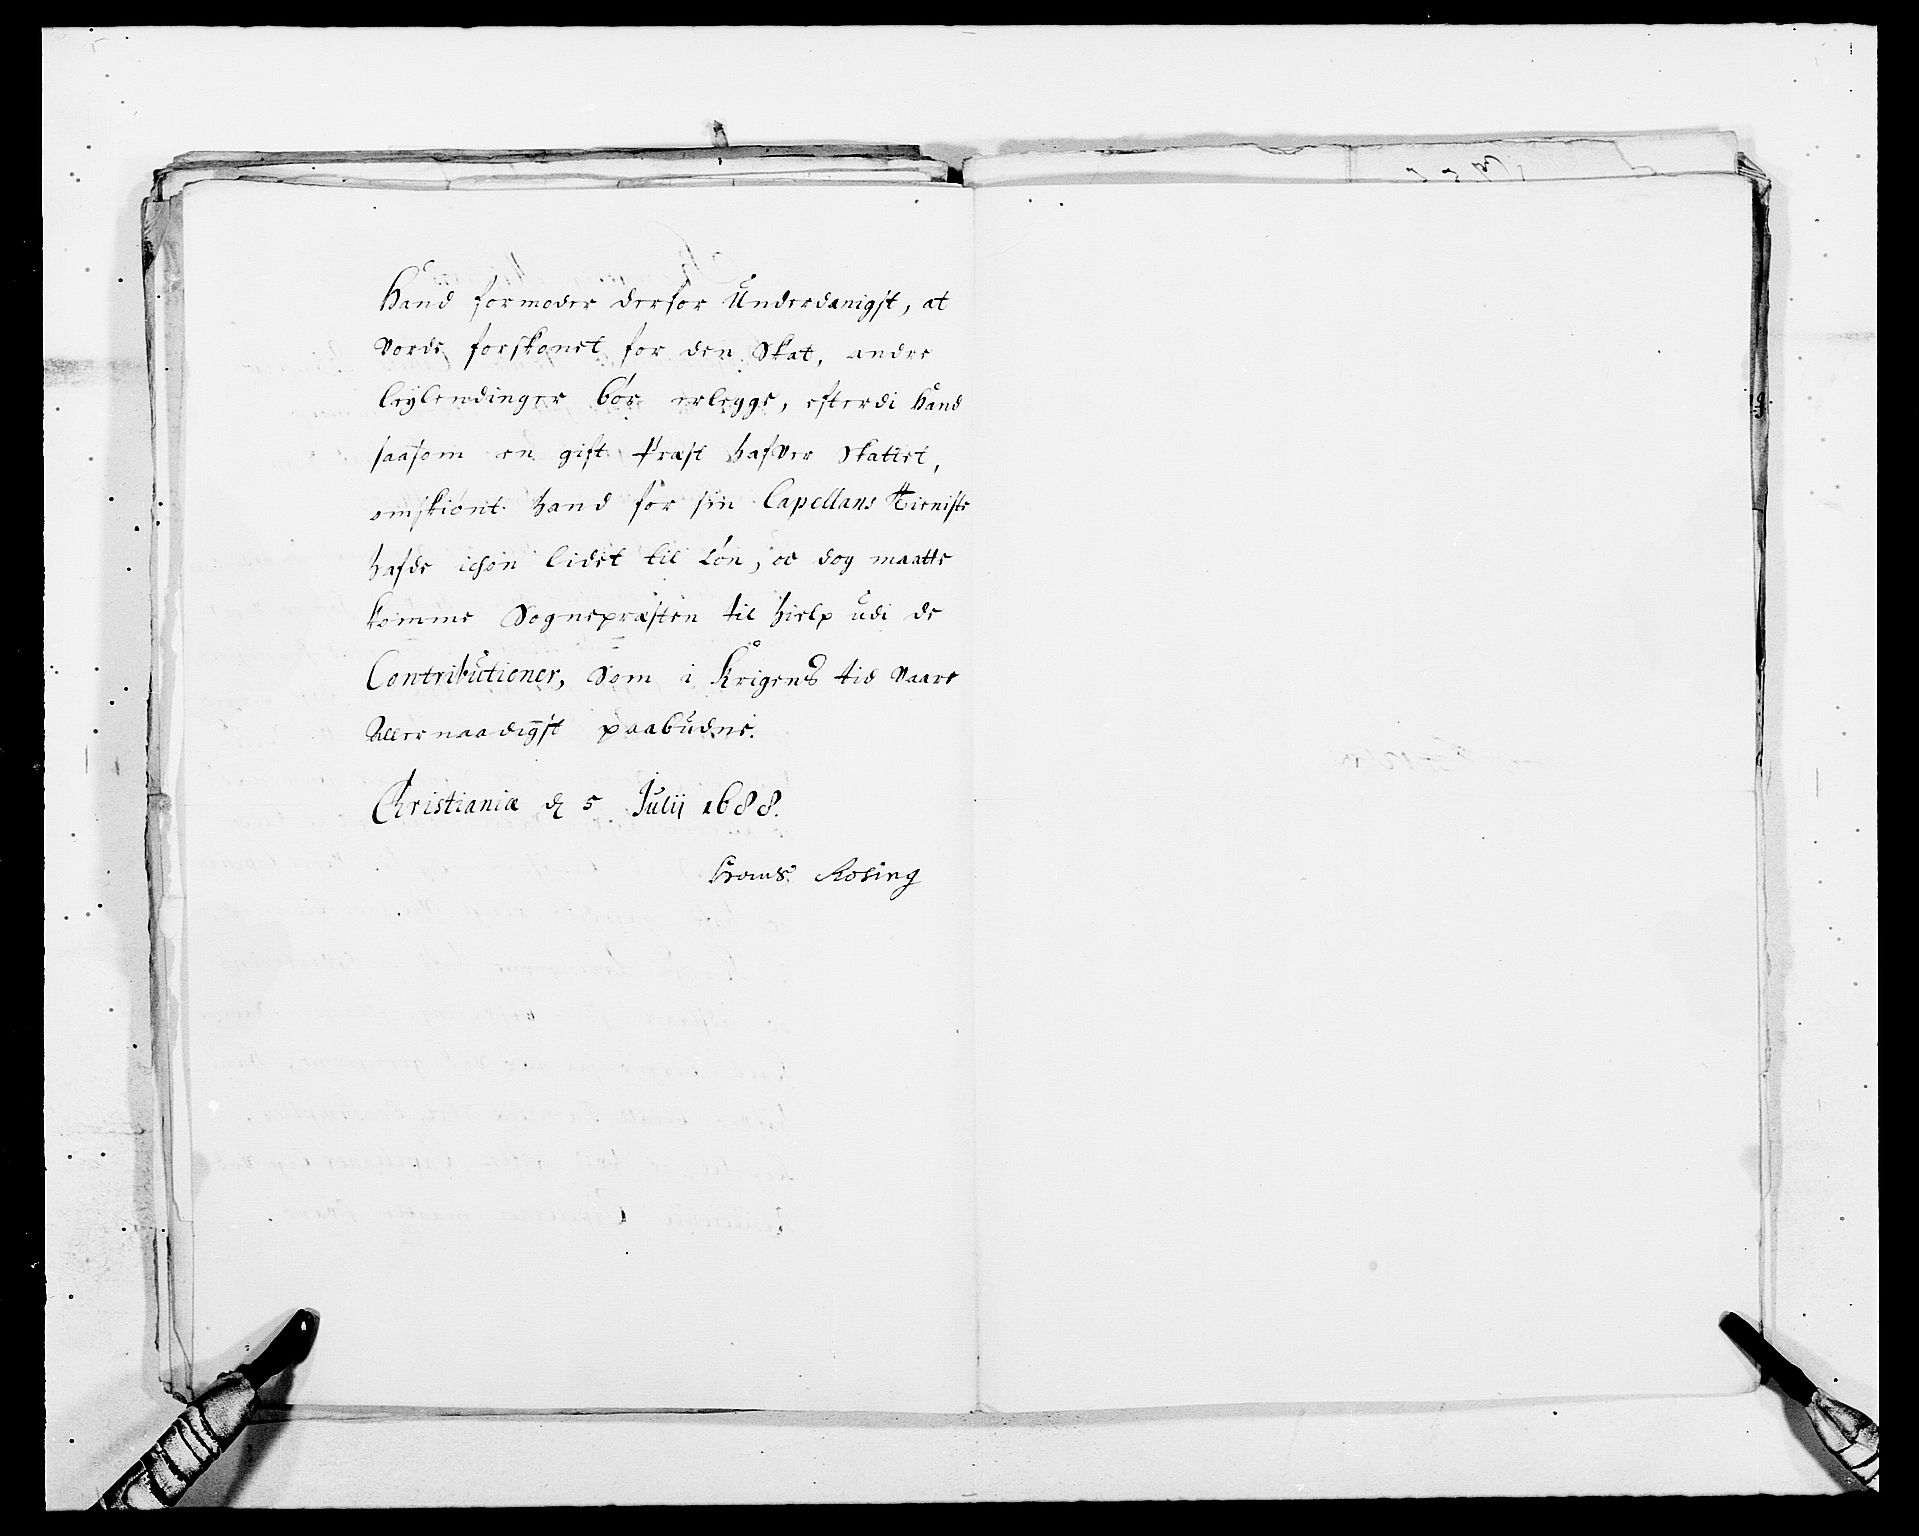 Hand formoder derfor Underdanigst, at
vorde forskonet for den Skat, andre
leylendinger bør erlegge, efterdi Hand
saasom en gift Præst hafver Skattet,
omskiønt hand for sin Capellans Tieniste
hafde ichon lidet til Løn, oc dog maatte
komme Sognepræsten til hielp udi de
Contributioner, Som i Krigens tid vaare
Allernaadigst paabudne.
Christianiæ d 5 Julij 1688.
Frans Rosing